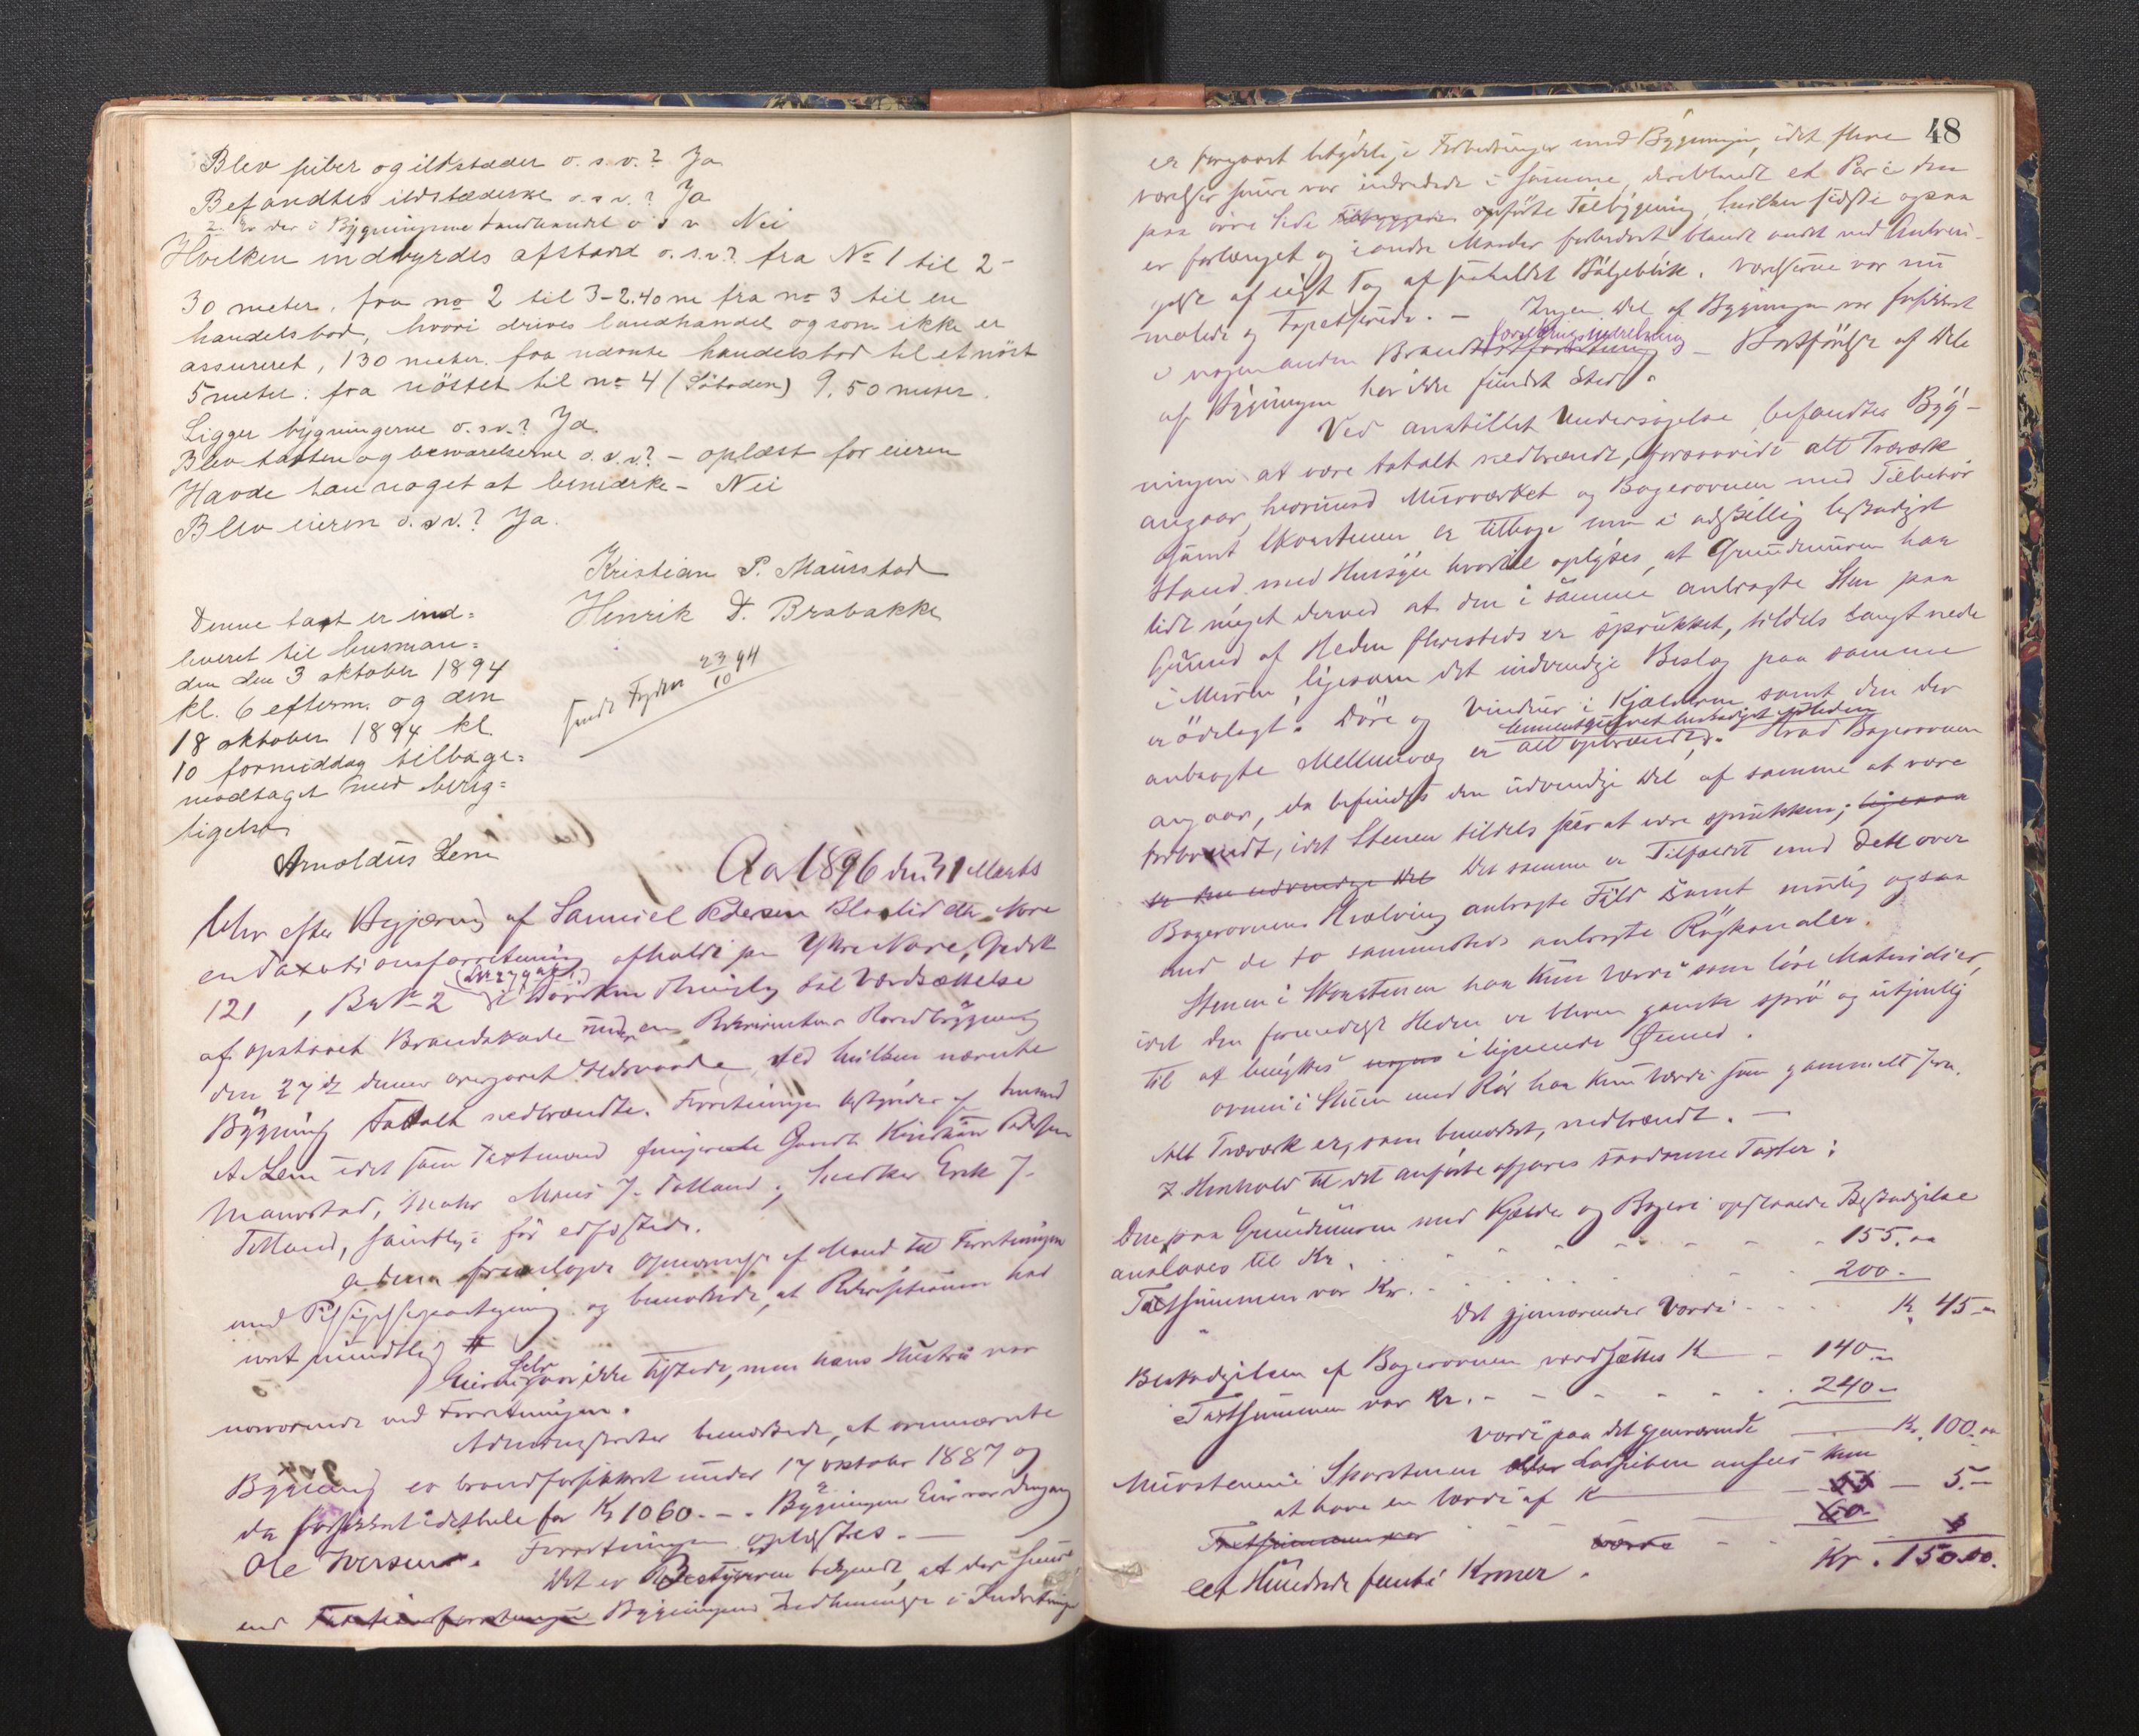 Blev piber og ildstæder o. s. v.? Ja
Befandtes ildstæderne o. s. v.? Ja
2. Er der i Bygningerne Landhandel o s v Nei
Hvilken indbyrdes afstand o. s. v.? fra No 1 til 2 -
30 meter, fra no 2 til 3 - 2.40 m fra no 3 til en
handelsbod, hvori drives landhandel og som ikke er
assureret, 130 meter. fra nævnte handelsbod til et nöst
5 meter: fra nöstet til no 4 (Söboden) 9,50 meter.
Ligger bygningerne o. s. v.? Ja.
Blev taxten og besvarelserne o. s. v.? - oplæst for eieren
Havde han noget at bemærke - Nei
Blev eieren o. s v.? Ja.
Kristian P. Maurstad
Henrik D. Brabakke
Denne taxt er ind=
leveret til husman=
den den 3 oktober 1894
kl. 6 efterm. og den
18 oktober 1894 kl
10 formiddag tilbage=
modtaget med berig=
tigelse
Arnoldus Lem
sendt Fogden 23/10 94
Aar 1896 den 31 Marts
blev efter Begjæring af Samuel Pedersen Blaalid Ytre Nore
en Taxationsforretning afholdt paa Ytre Nore, Gaards No
121, Br No 2 i Thinglag til Værdsættelse
af opstaaet Brandskade med en Rekvirenten Bygning
den 27de dennes overgaaet Ildsvaade, ved hvilken nævnte
Bygning totalt nedbrændte. Forretningen bestyredes af Lensmand
A. Lem idet som Taxtmænd fungerede Gaardb. Kristian Pedersen
Maurstad, Maler Mons J. Totland, Snedker Erik J.
Totland, samtlige för edfæstede.
Adm. fremlagde Opnævnelse af Mænd til Forretningen
med Tilsigelsespaategning og bemærkede, at Rekvisitionen had
været mundtlig #
Eieren selv var ikke tilstede, men hans Hustru var
nærværende ved Forretningen.
Administrator bemærkede, at ovennævnte
Bygning er brandforsikkret under 17 oktober 1887 og
da forsikkret i det hele for Kr 1060.-. Bygningens Eier var dengang
Ole Iversen. Forretningen oplæstes.-
Det er Bestyreren bekjendt, at der siden
end Taxtionsforretningen Bygningens Indlemmelse i Indretningen
48
er foregaaet betydelige Forbedringer med Bygningen, idet flere
værelser senere var indredede i samme, deriblandt et Par i den
paa övre Side Tilbyggede opförte Tilbygning, hvilken sidste ogsaa
er forlænget og i andre Maader forbedret blandt andet ved Anbrin-
gelse af nyt Tag af Bölgeblik. Værelserne var nu
malede og Tapetserede. - Ingen Del af Bygningen var forsikkret
i nogen anden Brandforsikringsindretning - Bortförelse af Dele
af Bygningen har ikke fundet Sted.
Ved anstillet Undersögelse befandtes Byg-
ningen at være totalt nedbrændt, forsaavidt alt Træværk
angaar, hvorimod Murværket og Bagerovnen med Tilbehör
samt Skorstenen er tilbage men i adskillig beskadiget
Stand. med Hensyn hvortil oplyses, at Grundmuren har
lidt meget derved at den i samme anbragte Sten paa
Grund af Heden flersteds er sprukket, tildels langt nede
i Muren, ligesom det indvendige Beslag paa samme
er ödelagt. Döre og Vinduer i Kjælderen samt den der
anbragte Mellemvæg er alt opbrændt. Hvad Bagerovnen
angaar, da befindes den udvendige Del af samme at være
forbrændt, idet Stenen tildels sees at være sprukken; ligesaa
er den udvendige Del Det samme er Tilfældet med Dette over
Bagerovnens Hvælving anbragte Fyld samt muelig ogsaa
med de to sammesteds anbragte Rögkanaler.
Stenen i Skorstenen har kun Værdi som löse Materialier,
idet den formedelst Heden er bleven ganske sprö og utjenlig
til at benyttes nogen i lignende Öiemed.
ovnen i Stuen med Rör har kun Værdi som gammelt Jern.
Alt Træværk er, som bemærket, nedbrændt. -
I Henhold til det anförte afgaves saadanne Taxter:
Den paa Grundmuren med Kjælder og Bageri opstaaede Beskadigelse
ansloges til Kr. - - - - - 155.00
Taxtsummen var Kr. - - - - 200 -
Det gjenværendes Værdi - - - Kr. 45 -
Beskadigelsen af Bagerovnen værdsættes Kr - 140 -
Taxtsummen var Kr. - - - - - 240 -
Værdi paa det gjenværende - Kr. 100.00
Murstenen i Skorstenen ansees kun
at have en Værdi af Kr - 5.-
Taxtsummen var 60 -
Kr. 150.00.
eet Hundrede femti Kroner.